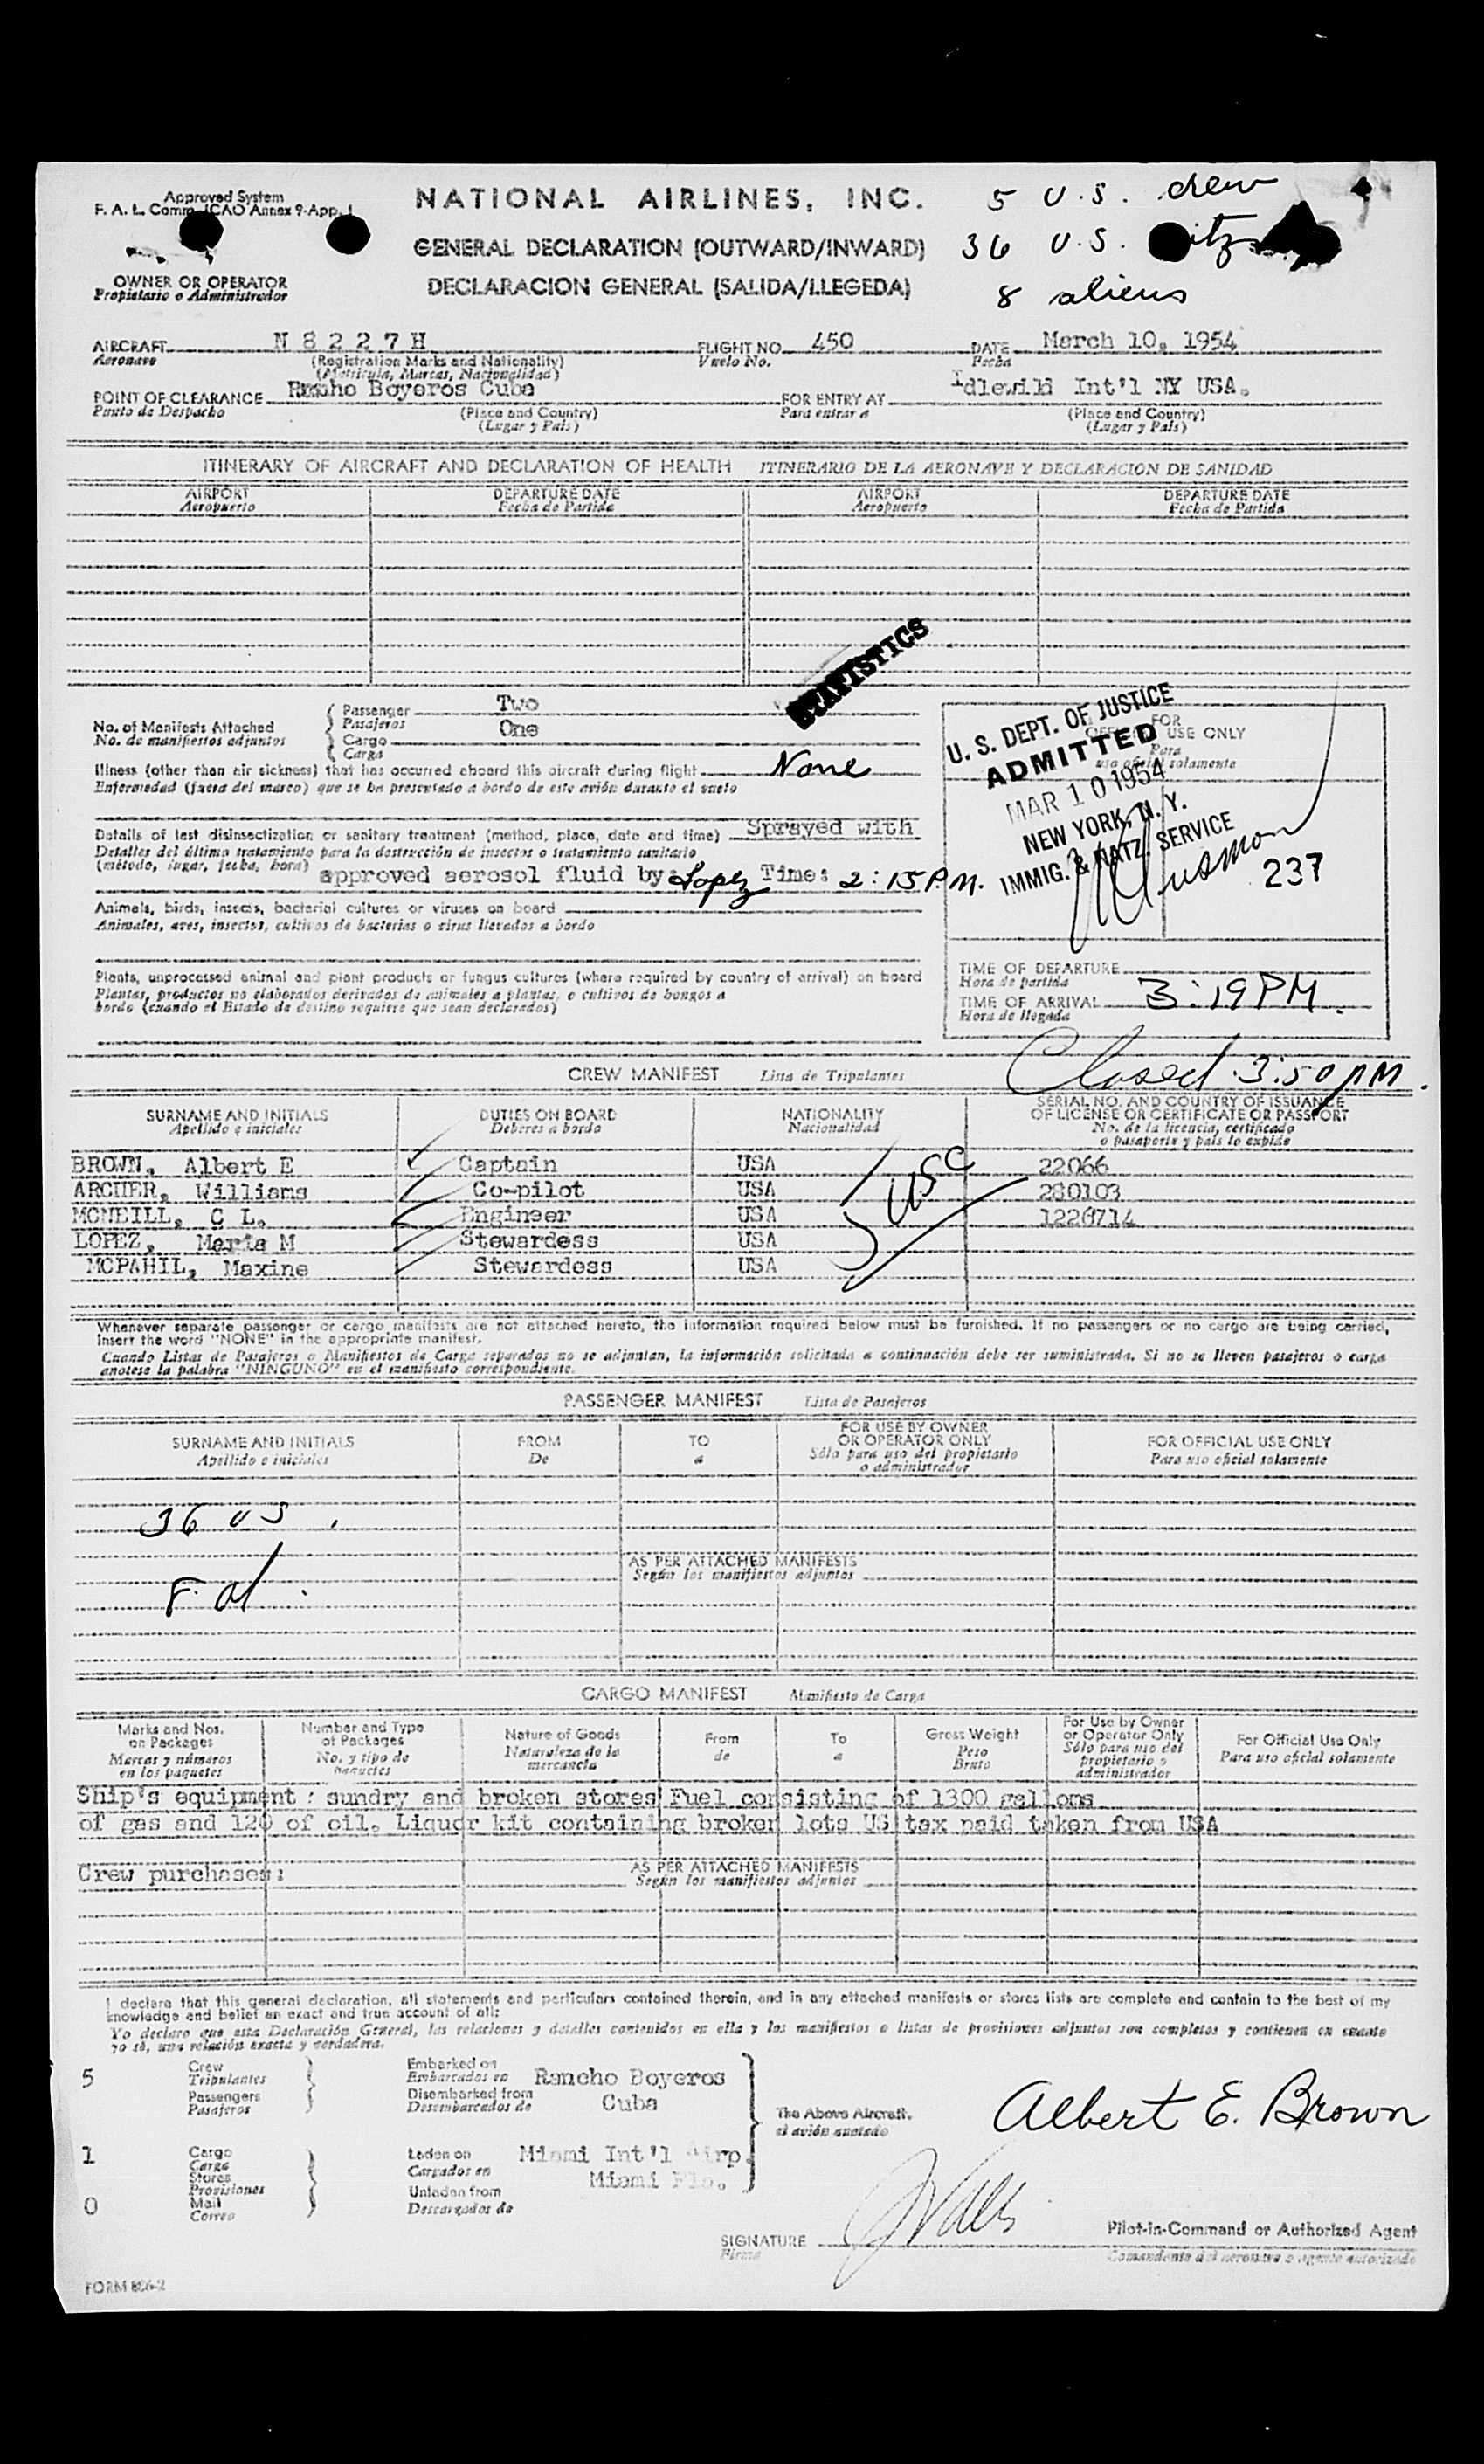 Approved System
F. A. L. Comm. ICAO Annex 9-App. I
NATIONAL AIRLINES, INC.
GENERAL DECLARATION (OUTWARD/INWARD)
DECLARACION GENERAL (SALIDA/LLEGEDA)
5 U.S. crew
36 U.S. citz
8 aliens
OWNER OR OPERATOR
Propietario o Administrador
AIRCRAFT N 8 2 2 7 H FLIGHT NO. 450 DATE March 10, 1954
Aeronave (Registration Marks and Nationality) Vuelo No. Fecha
(Matricula, Marcas, Nacionalidad)
POINT OF CLEARANCE Rancho Boyeros Cuba FOR ENTRY AT Idlewild Int'l NY USA.
Punto de Despacho (Place and Country) Para entrar a (Place and Country)
(Lugar y Pais) (Lugar y Pais)
ITINERARY OF AIRCRAFT AND DECLARATION OF HEALTH ITINERARIO DE LA AERONAVE Y DECLARACION DE SANIDAD
AIRPORT DEPARTURE DATE AIRPORT DEPARTURE DATE
Aeropuerto Fecha de Partida Aeropuerto Fecha de Partida
STATISTICS
No. of Manifests Attached
No. de manifiestos adjuntos
Passenger Two
Pasajeros
Cargo One
Carga
Illness (other than air sickness) that has occurred aboard this aircraft during flight None
Enfermedad (fuera del mareo) que se ha presentado a bordo de este avión durante el vuelo
Details of last disinsectization or sanitary treatment (method, place, date and time) Sprayed with
Detalles del último tratamiento para la destrucción de insectos o tratamiento sanitario
(método, lugar, fecha, hora) approved aerosol fluid by: Lopez Time: 2:15 P.M.
Animals, birds, insects, bacterial cultures or viruses on board
Animales, aves, insectos, cultivos de bacterias o virus llevados a bordo
Plants, unprocessed animal and plant products or fungus cultures (where required by country of arrival) on board
Plantas, productos no elaborados derivados de animales a plantas, o cultivos de hongos a
bordo (cuando el Estado de destino requiere que sean declarados)
FOR
OFFICIAL USE ONLY
Para
uso oficial solamente
U. S. DEPT. OF JUSTICE
ADMITTED
MAR 10 1954
NEW YORK, N. Y.
IMMIG. & NATZ. SERVICE
237
TIME OF DEPARTURE
Hora de partida
TIME OF ARRIVAL 3:19 PM.
Hora de llegada
Closed 3:50 PM.
CREW MANIFEST Lista de Tripulantes
SURNAME AND INITIALS DUTIES ON BOARD NATIONALITY SERIAL NO. AND COUNTRY OF ISSUANCE
Apellido e iniciales Deberes a bordo Nacionalidad OF LICENSE OR CERTIFICATE OR PASSPORT
No. de la licencia, certificado
o pasaporte y pais lo expide
BROWN, Albert E Captain USA 22066
ARCHER, Williams Co-pilot USA 280103
MCNEILL, C L. Engineer USA 1226714
LOPEZ, Maria M Stewardess USA
MCPAHIL, Maxine Stewardess USA
5 USC
Whenever separate passenger or cargo manifests are not attached hereto, the information required below must be furnished. If no passengers or no cargo are being carried,
insert the word "NONE" in the appropriate manifest.
Cuando Listas de Pasajeros o Manifiestos de Carga separados no se adjuntan, la información solicitada a continuación debe ser suministrada. Si no se lleven pasajeros o carga
anotese la palabra "NINGUNO" en el manifiesto correspondiente.
PASSENGER MANIFEST Lista de Pasajeros
SURNAME AND INITIALS FROM TO FOR USE BY OWNER FOR OFFICIAL USE ONLY
Apellido e iniciales De a OR OPERATOR ONLY Para uso oficial solamente
Sólo para uso del propietario
o administrador
36 US.
8 al.
AS PER ATTACHED MANIFESTS
Según los manifiestos adjuntos
CARGO MANIFEST Manifiesto de Carga
Marks and Nos. Number and Type Nature of Goods From To Gross Weight For Use by Owner For Official Use Only
on Packages of Packages Naturaleza de la de a Peso or Operator Only Para uso oficial solamente
Marcas y números No. y tipo de mercancia Bruto Sólo para uso del
en los paquetes paquetes propietario o
administrador
Ship's equipment: sundry and broken stores Fuel consisting of 1300 gallons
of gas and 120 of oil. Liquor kit containing broken lots US tax paid taken from USA
Crew purchases: AS PER ATTACHED MANIFESTS
Según los manifiestos adjuntos
I declare that this general declaration, all statements and particulars contained therein, and in any attached manifests or stores lists are complete and contain to the best of my
knowledge and belief an exact and true account of all:
Yo declaro que esta Declaración General, las relaciones y detalles contenidos en ella y los manifiestos o listas de provisiones adjuntos son completos y contienen en cuanto
yo sé, una relación exacta y verdadera.
5 Crew Embarked on Rancho Boyeros
Tripulantes Embarcados en
Passengers Disembarked from Cuba
Pasajeros Desembarcados de
The Above Aircraft.
el avión anotado
Albert E. Brown
1 Cargo Laden on Miami Int'l Airp.
Carga Cargados en
Stores Miami Fla.
Provisiones Unladen from
0 Mail Descargados de
Correo
SIGNATURE
Firma
Pilot-in-Command or Authorized Agent
Comandante del aeronave o agente autorizado
FORM 806-2